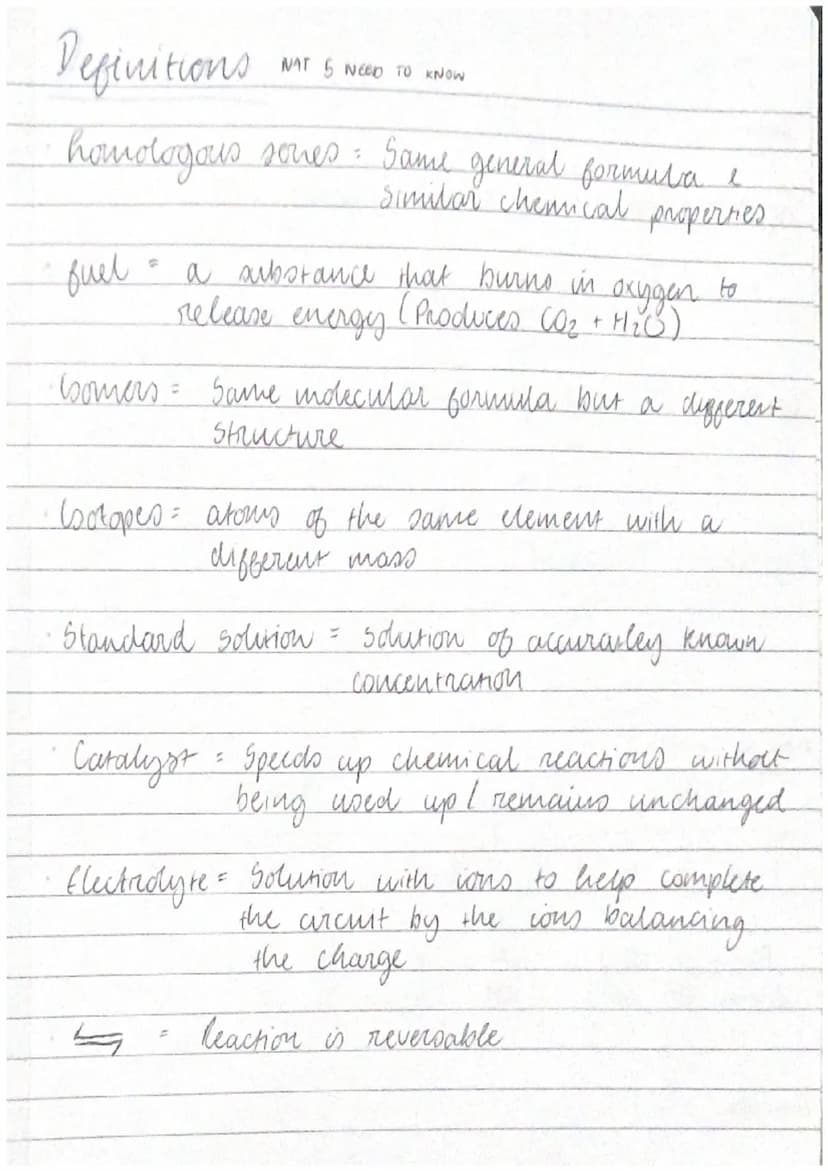 Definitions NAT 5 NEED TO KNOW
· homologous series = Same general formula &
similar chemical properties
· fuel = a substance that burns in oxygen to
release energy (Produces CO₂ + H₂O)
· Isomers = Same molecular formula but a different
structure
· Isotopes = atoms of the same element with a
different mass
· Standard solution = solution of accurarley known
concentration
· Catalyst = Speeds up chemical reactions without
being used up / remains unchanged
· Electrolyte = Solution with ions to help complete
the circuit by the ions balancing
the charge
· ⇌ = Reaction is reversable